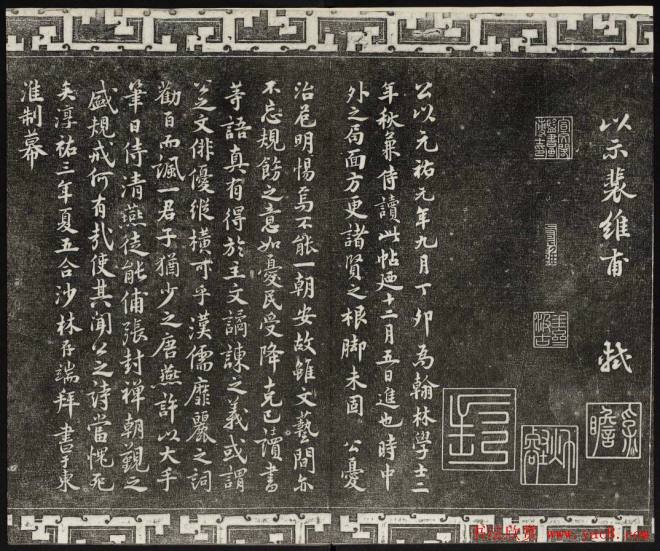 以示裴维甫 軾
公以元祐元年九月丁卯為翰林學士二
年秋兼侍讀此帖廼十二月五日進也時中
外之局面方更諸賢之根脚未固 公憂
治危明惕焉不能一朝安故雖文藝間亦
不忘規飭之意如憂民受降克己讀書
等語真有得於主文譎諫之義或謂
公之文俳優縱橫亦乎漢儒靡麗之詞
勸百而諷一君子猶少之唐燕許以大手
筆日侍清燕徒能俌張封禅朝覲之
盛規戒何有哉使其聞公之詩當愧死
矣淳祐三年夏五合沙林存端拜書于東
淮制幕
书法欣赏 www.yac8.com